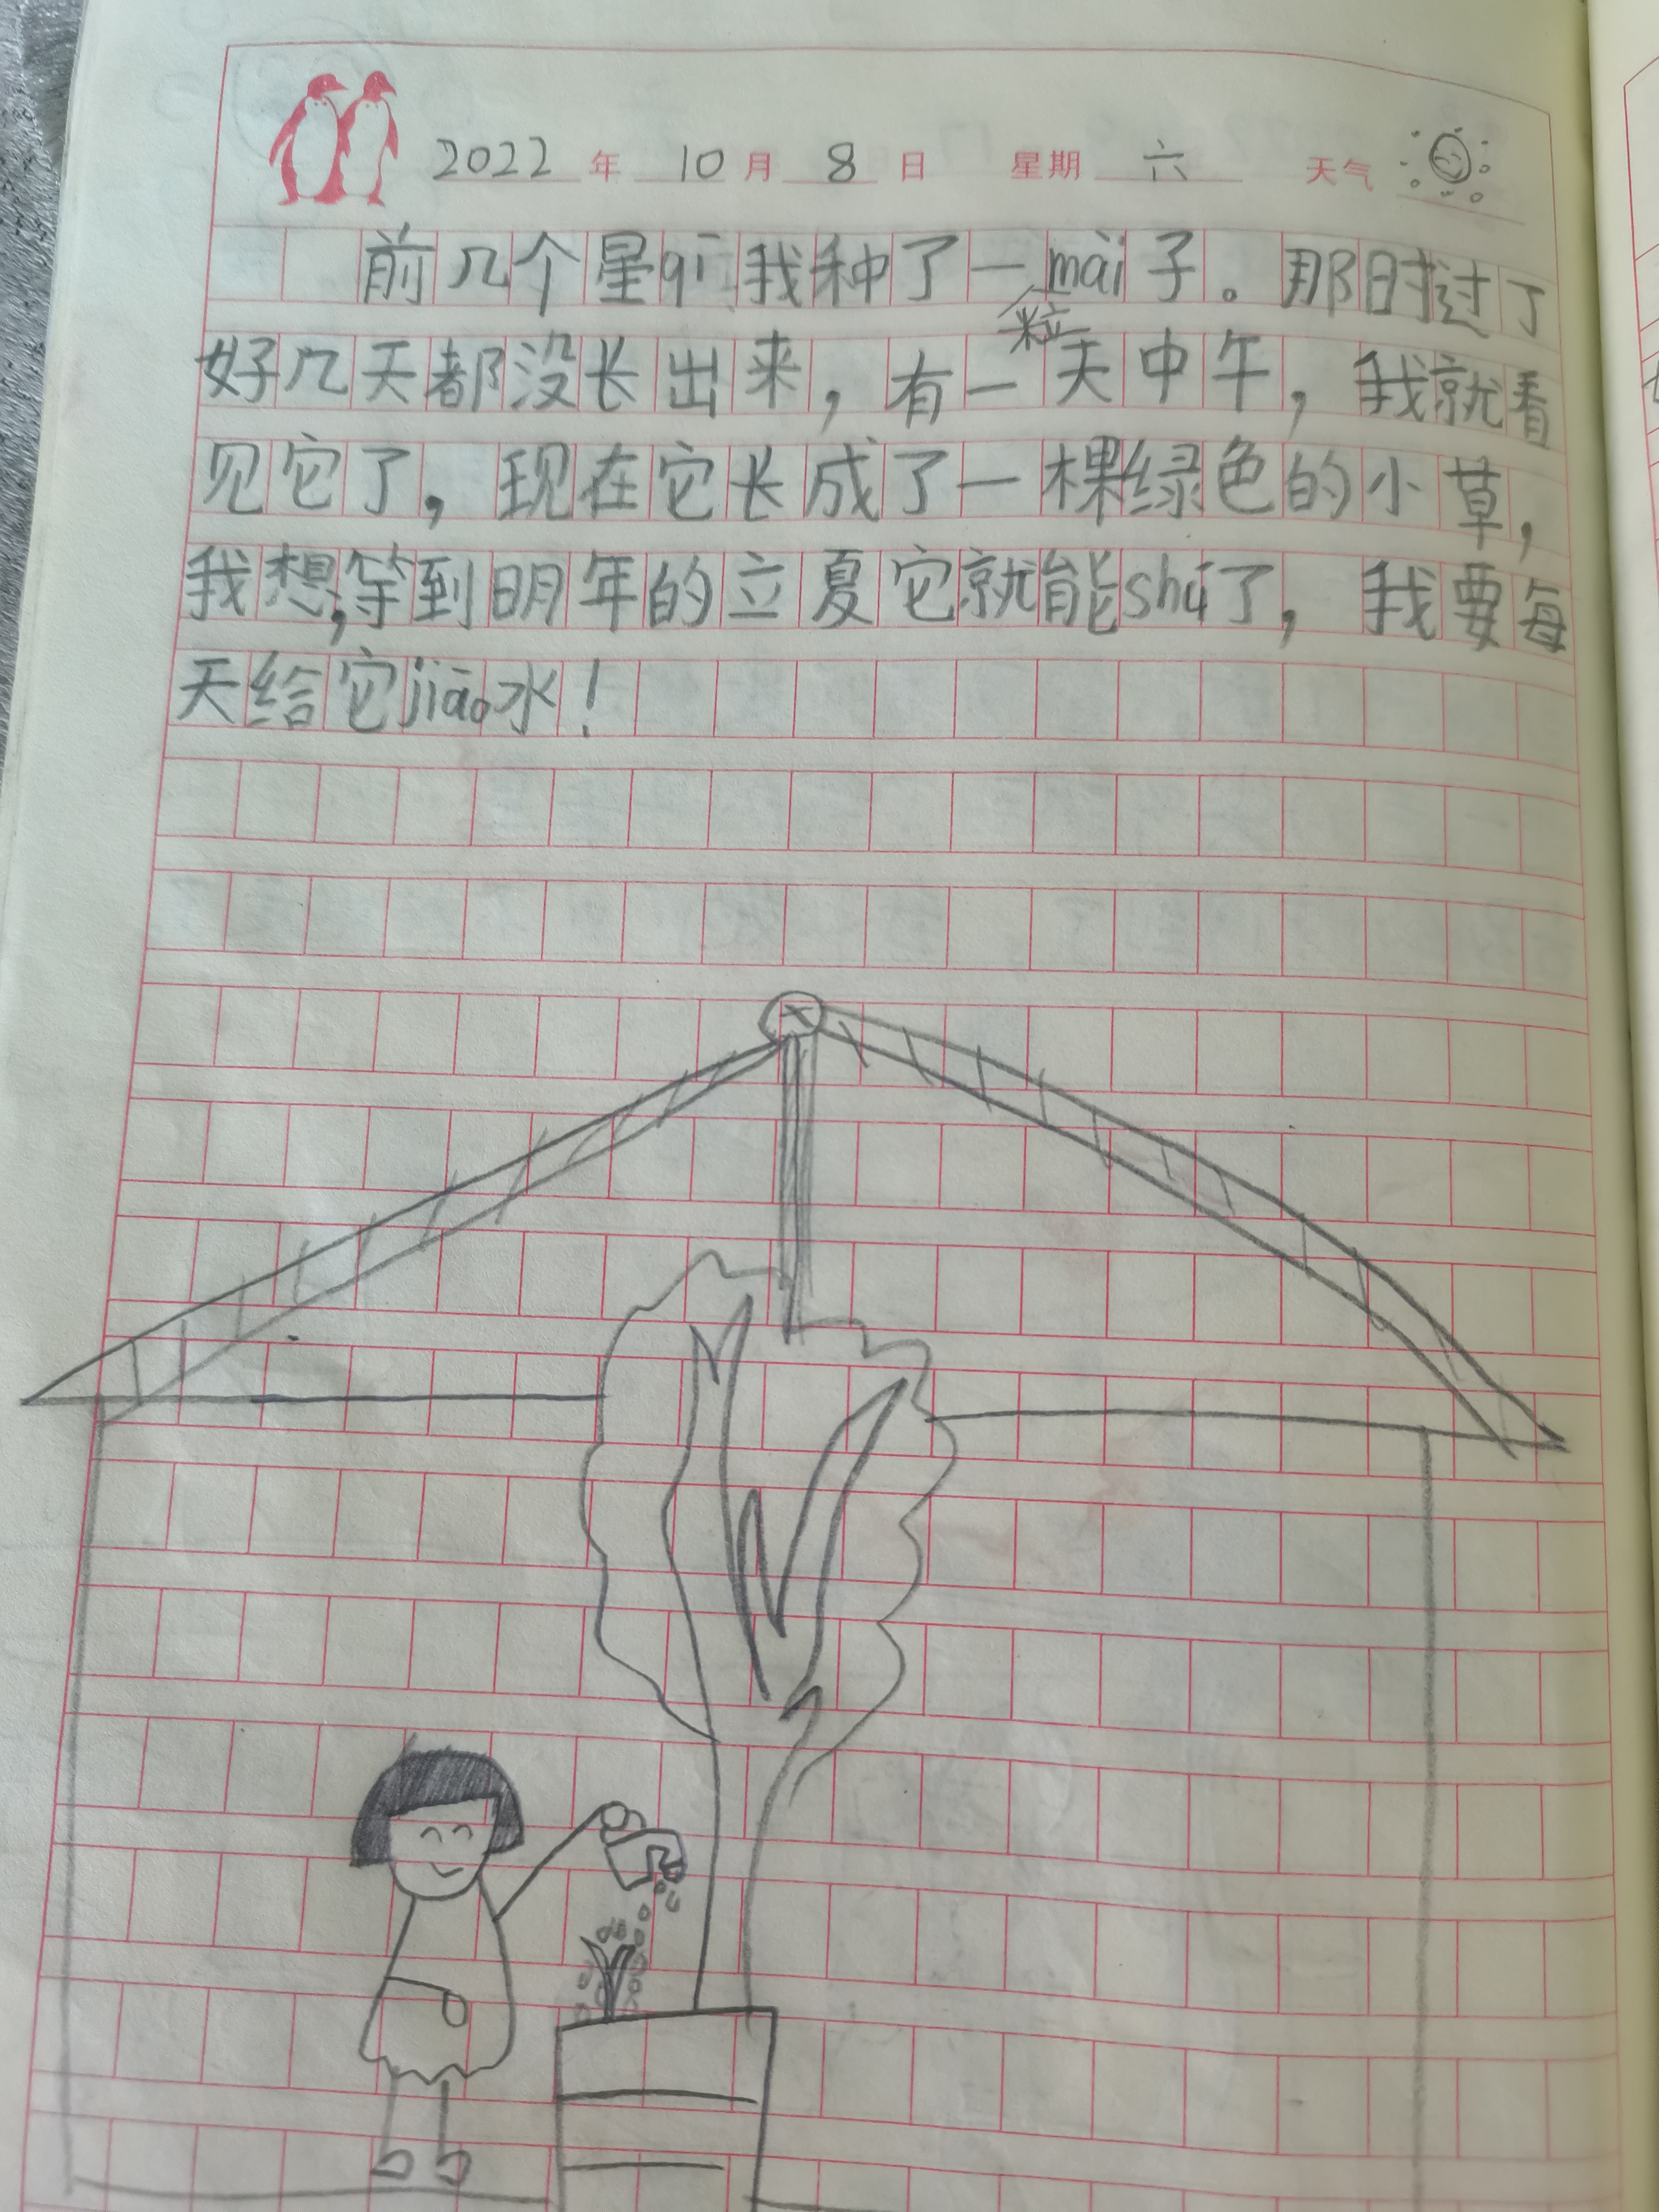 2022年10月8日 星期六 天气
前几个星qī我种了一粒mài子。那时过了
好几天都没长出来，有一天中午，我就看
见它了，现在它长成了一棵绿色的小草，
我想，等到明年的立夏它就能shú了，我要每
天给它jiāo水！